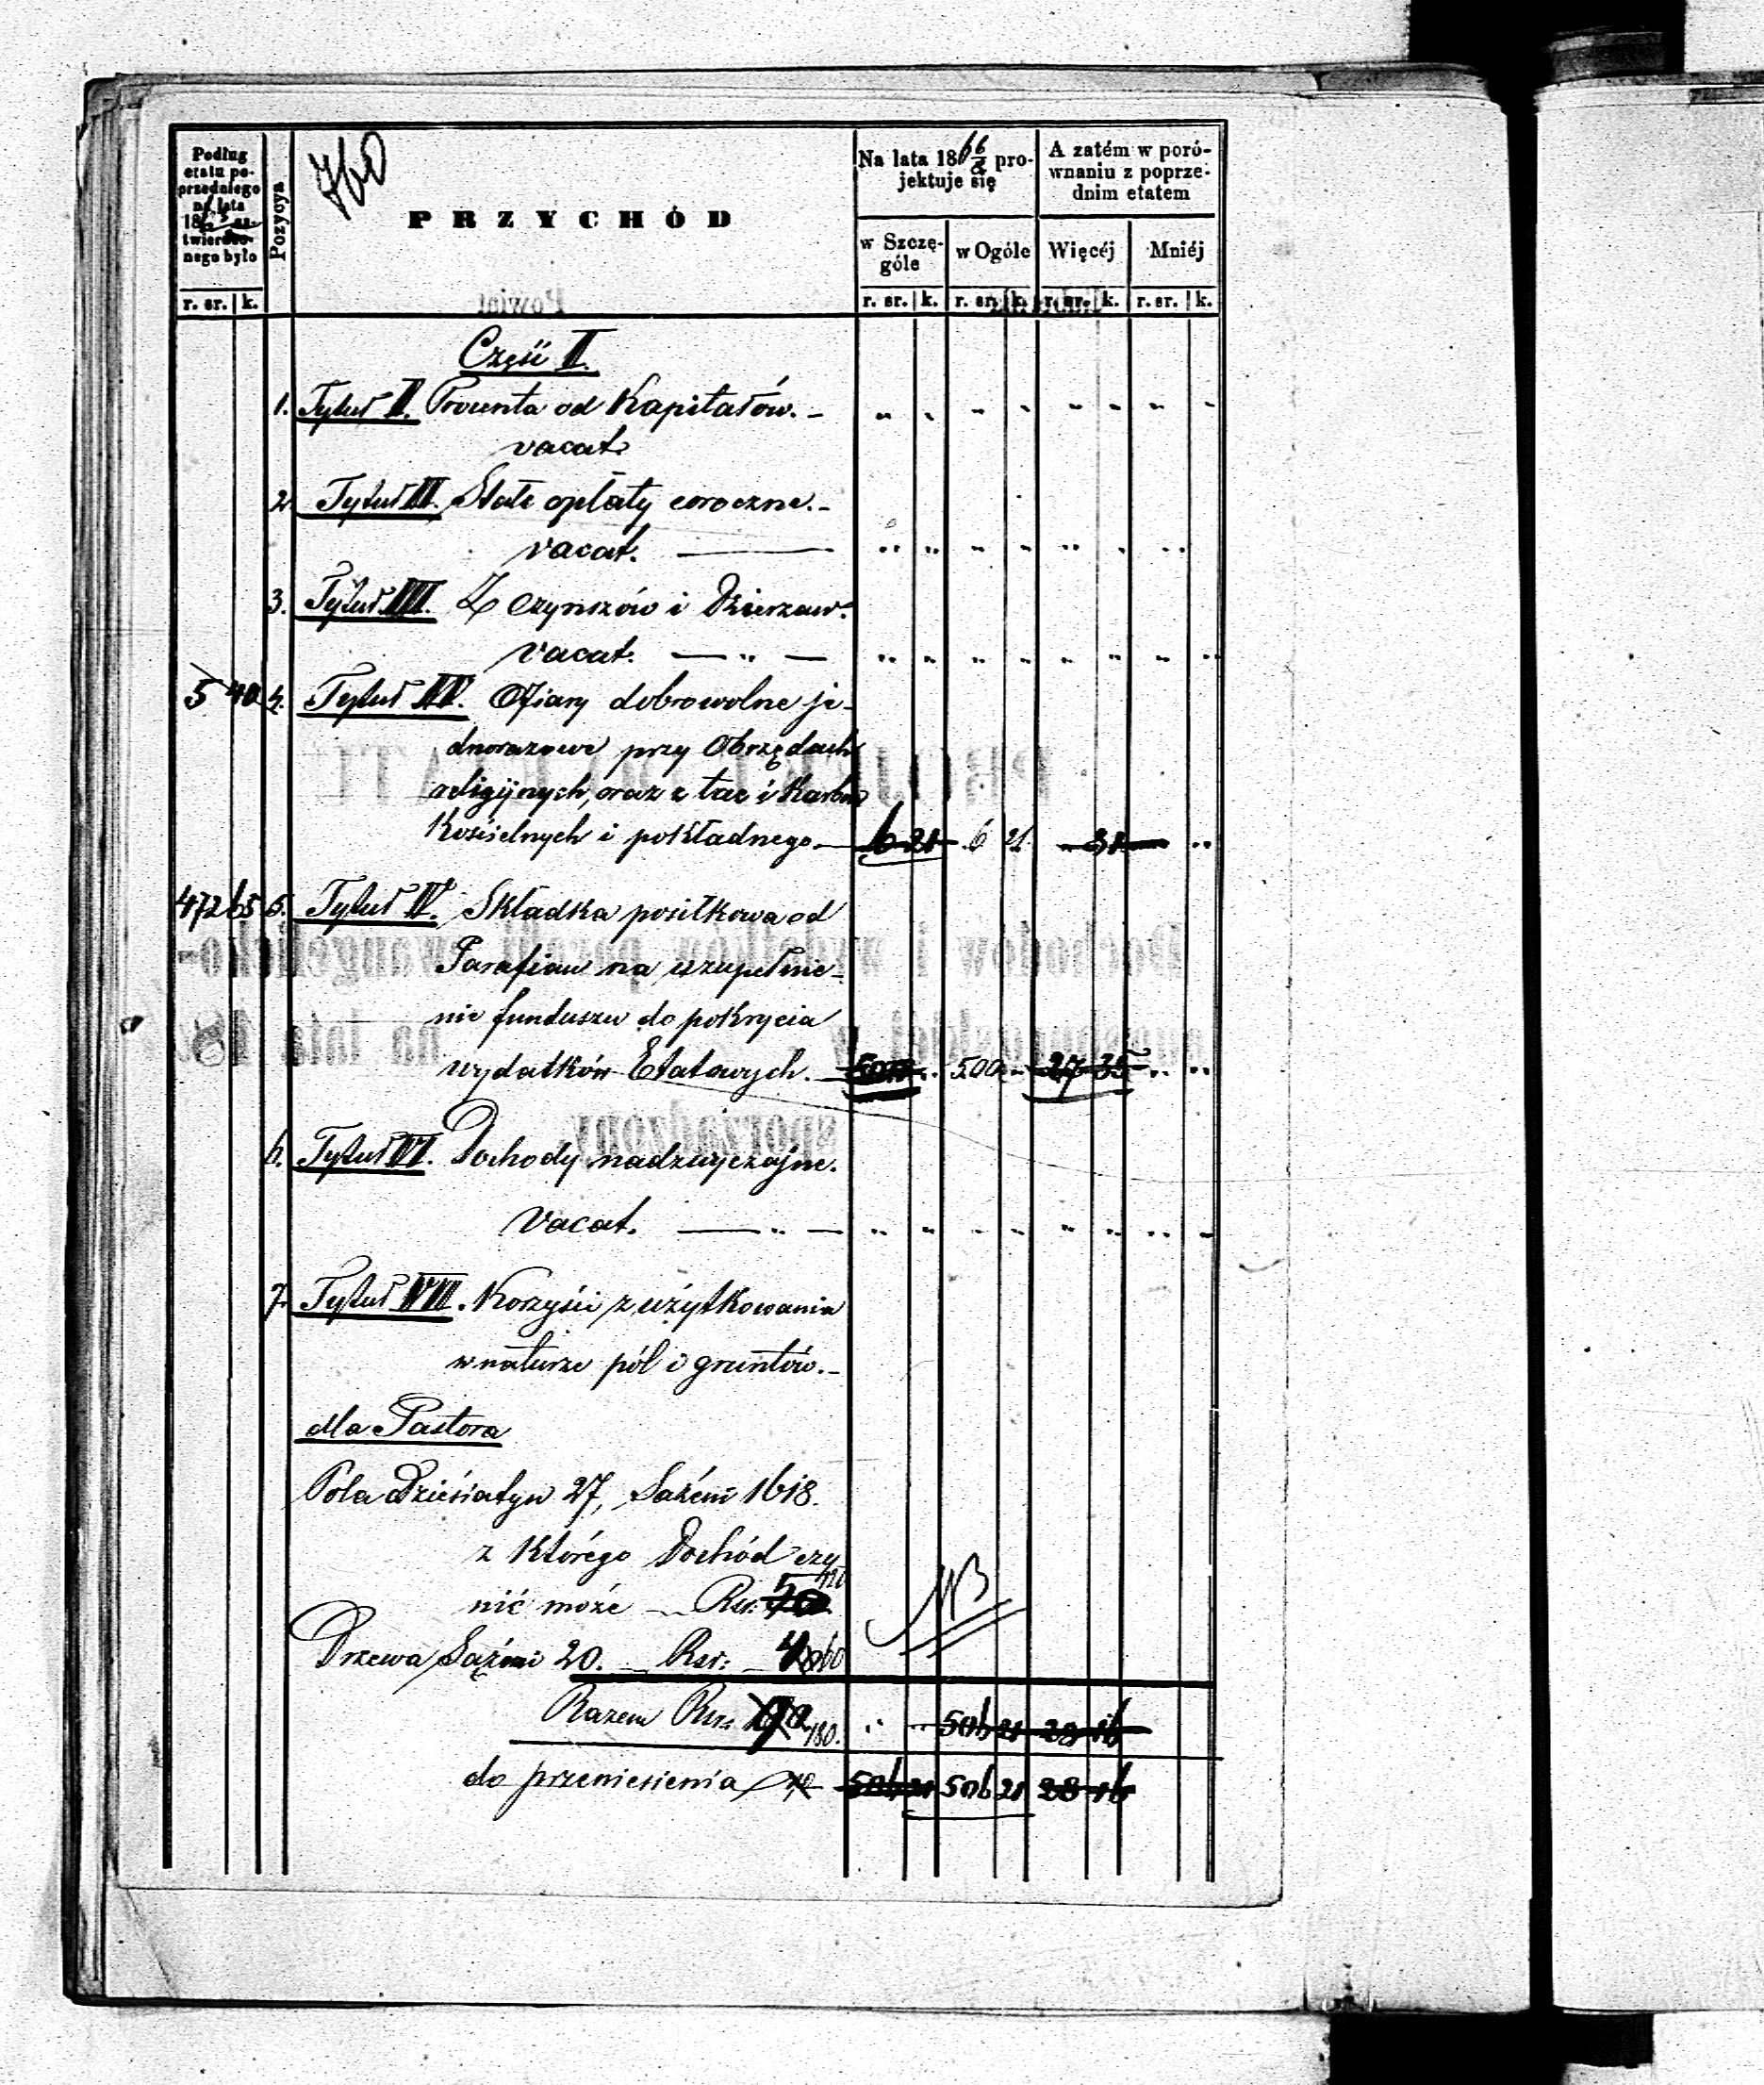 Podług
etatu po-
przedniego
na lata
186 za-
twierdzo-
nego było
Pozycya
760
PRZYCHÓD
Na lata 1866/8 pro-
jektuje się
A zatém w poró-
wnaniu z poprze-
dnim etatem
w Szczę-
góle
w Ogóle
Więcéj
Mniéj
r. sr. k.
r. sr. k. r. sr. k. r. sr. k. r. sr. k.
Część II.
1. Tytuł I. Procenta od Kapitałów. -
vacat
2. Tytuł II. Stałe opłaty coroczne. -
vacat.
3. Tytuł III. Z Czynszów i Dzierzaw.
vacat.
5 40 4. Tytuł IV. Ofiary dobrowolne je-
dnorazowe przy Obrzędach
religijnych, oraz z tac i Karbon
Kościelnych i pokładnego. 6 21 6 21 81
472 65 5. Tytuł V. Składka posiłkowa od
Parafian na uzupełnie-
nie funduszu do pokrycia
wydatków Etatowych. 500 500 27 35
6. Tytuł VI. Dochody nadzwyczajne.
Vacat.
7. Tytuł VII. Korzyści z użytkowania
w naturze pól i gruntów. -
dla Pastora
Pola Dziesiatyn 27, Sażeni 1618.
z którego Dochód czy-
nić może Rsr: 50 120
Drzewa Sążeni 20. Rsr: 60
NB
Razem Rsr. 180. 506 21 28 16
do przeniesienia 506 21 506 21 28 16